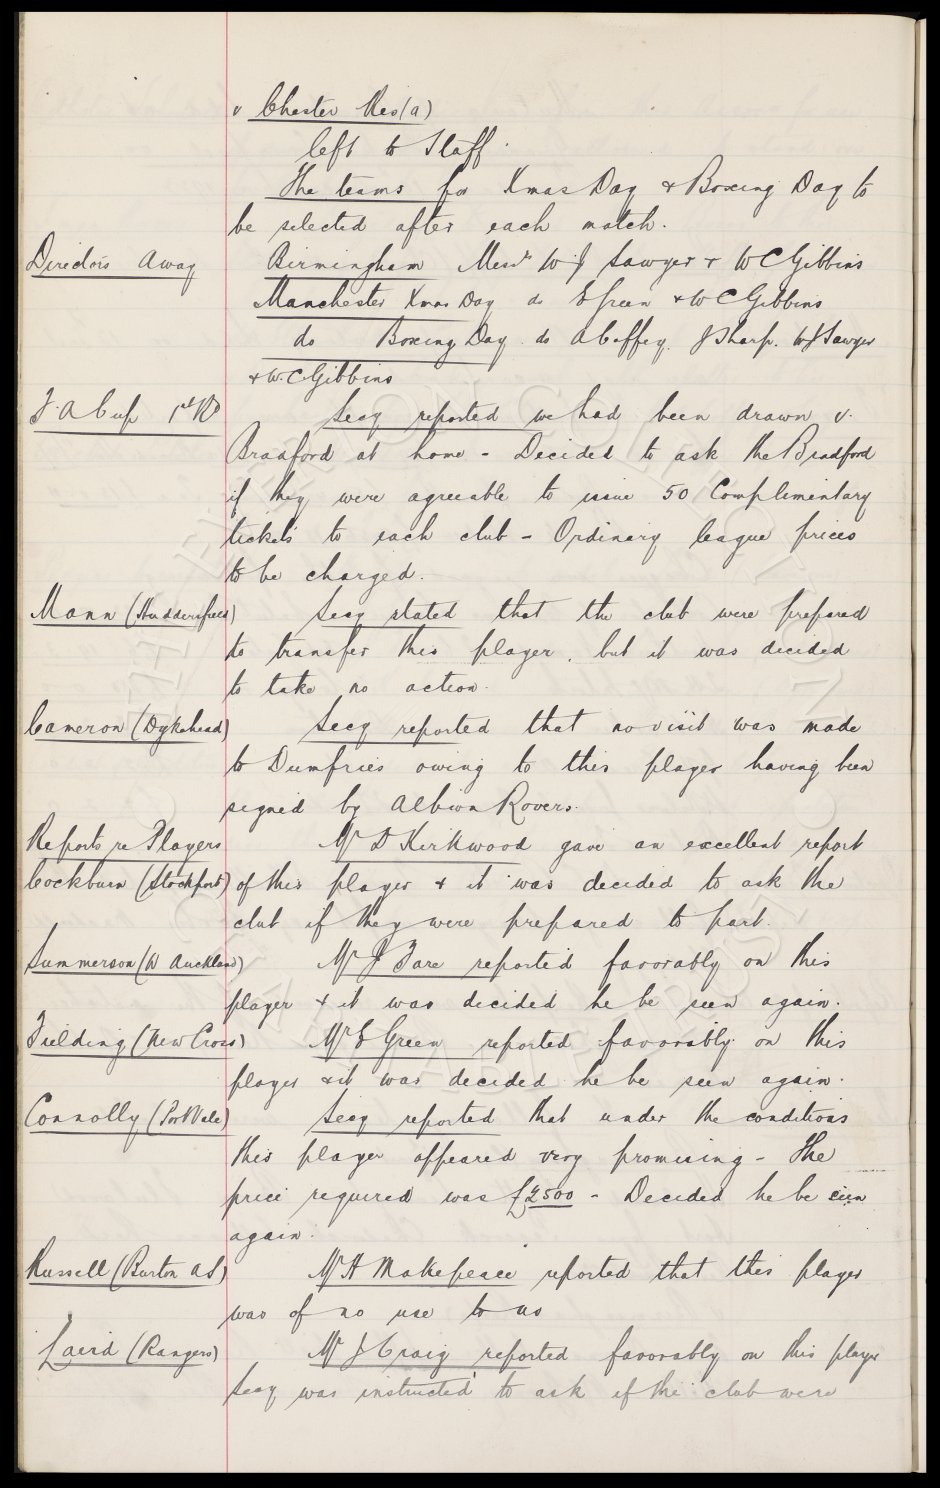 v Chester Res (a)
left to Staff.
The teams for Xmas Day & Boxing Day to
be selected after each match.
Directors Away Birmingham Messrs W J Sawyer & W C Gibbins
Manchester Xmas Day do E Green & W C Gibbins
do Boxing Day do A Coffey, J Sharp, W J Sawyer
& W. C. Gibbins
F. A Cup 1st Rd Secy reported we had been drawn v.
Bradford at home - Decided to ask the Bradford
if they were agreeable to issue 50 Complimentary
tickets to each club - Ordinary league prices
to be charged.
Mann (Huddersfield) Secy stated that the club were prepared
to transfer this player, but it was decided
to take no action.
Cameron (Dykehead) Secy reported that no visit was made
to Dumfries owing to this player having been
signed by Albion Rovers.
Reports re Players Mr D Kirkwood gave an excellent report
Cockburn (Stockport) of this player & it was decided to ask the
club if they were prepared to part.
Summerson (W Auckland) Mr J Fare reported favorably on this
player & it was decided he be seen again.
Fielding (New Cross) Mr E Green reported favorably on this
player & it was decided he be seen again.
Connolly (Port Vale) Secy reported that under the conditions
this player appeared very promising - The
price required was £2500 - Decided he be seen
again.
Russell (Burton A S) Mr H Makepeace reported that this player
was of no use to us
Laird (Rangers) Mr J Craig reported favorably on this player
Secy was instructed to ask if the club were